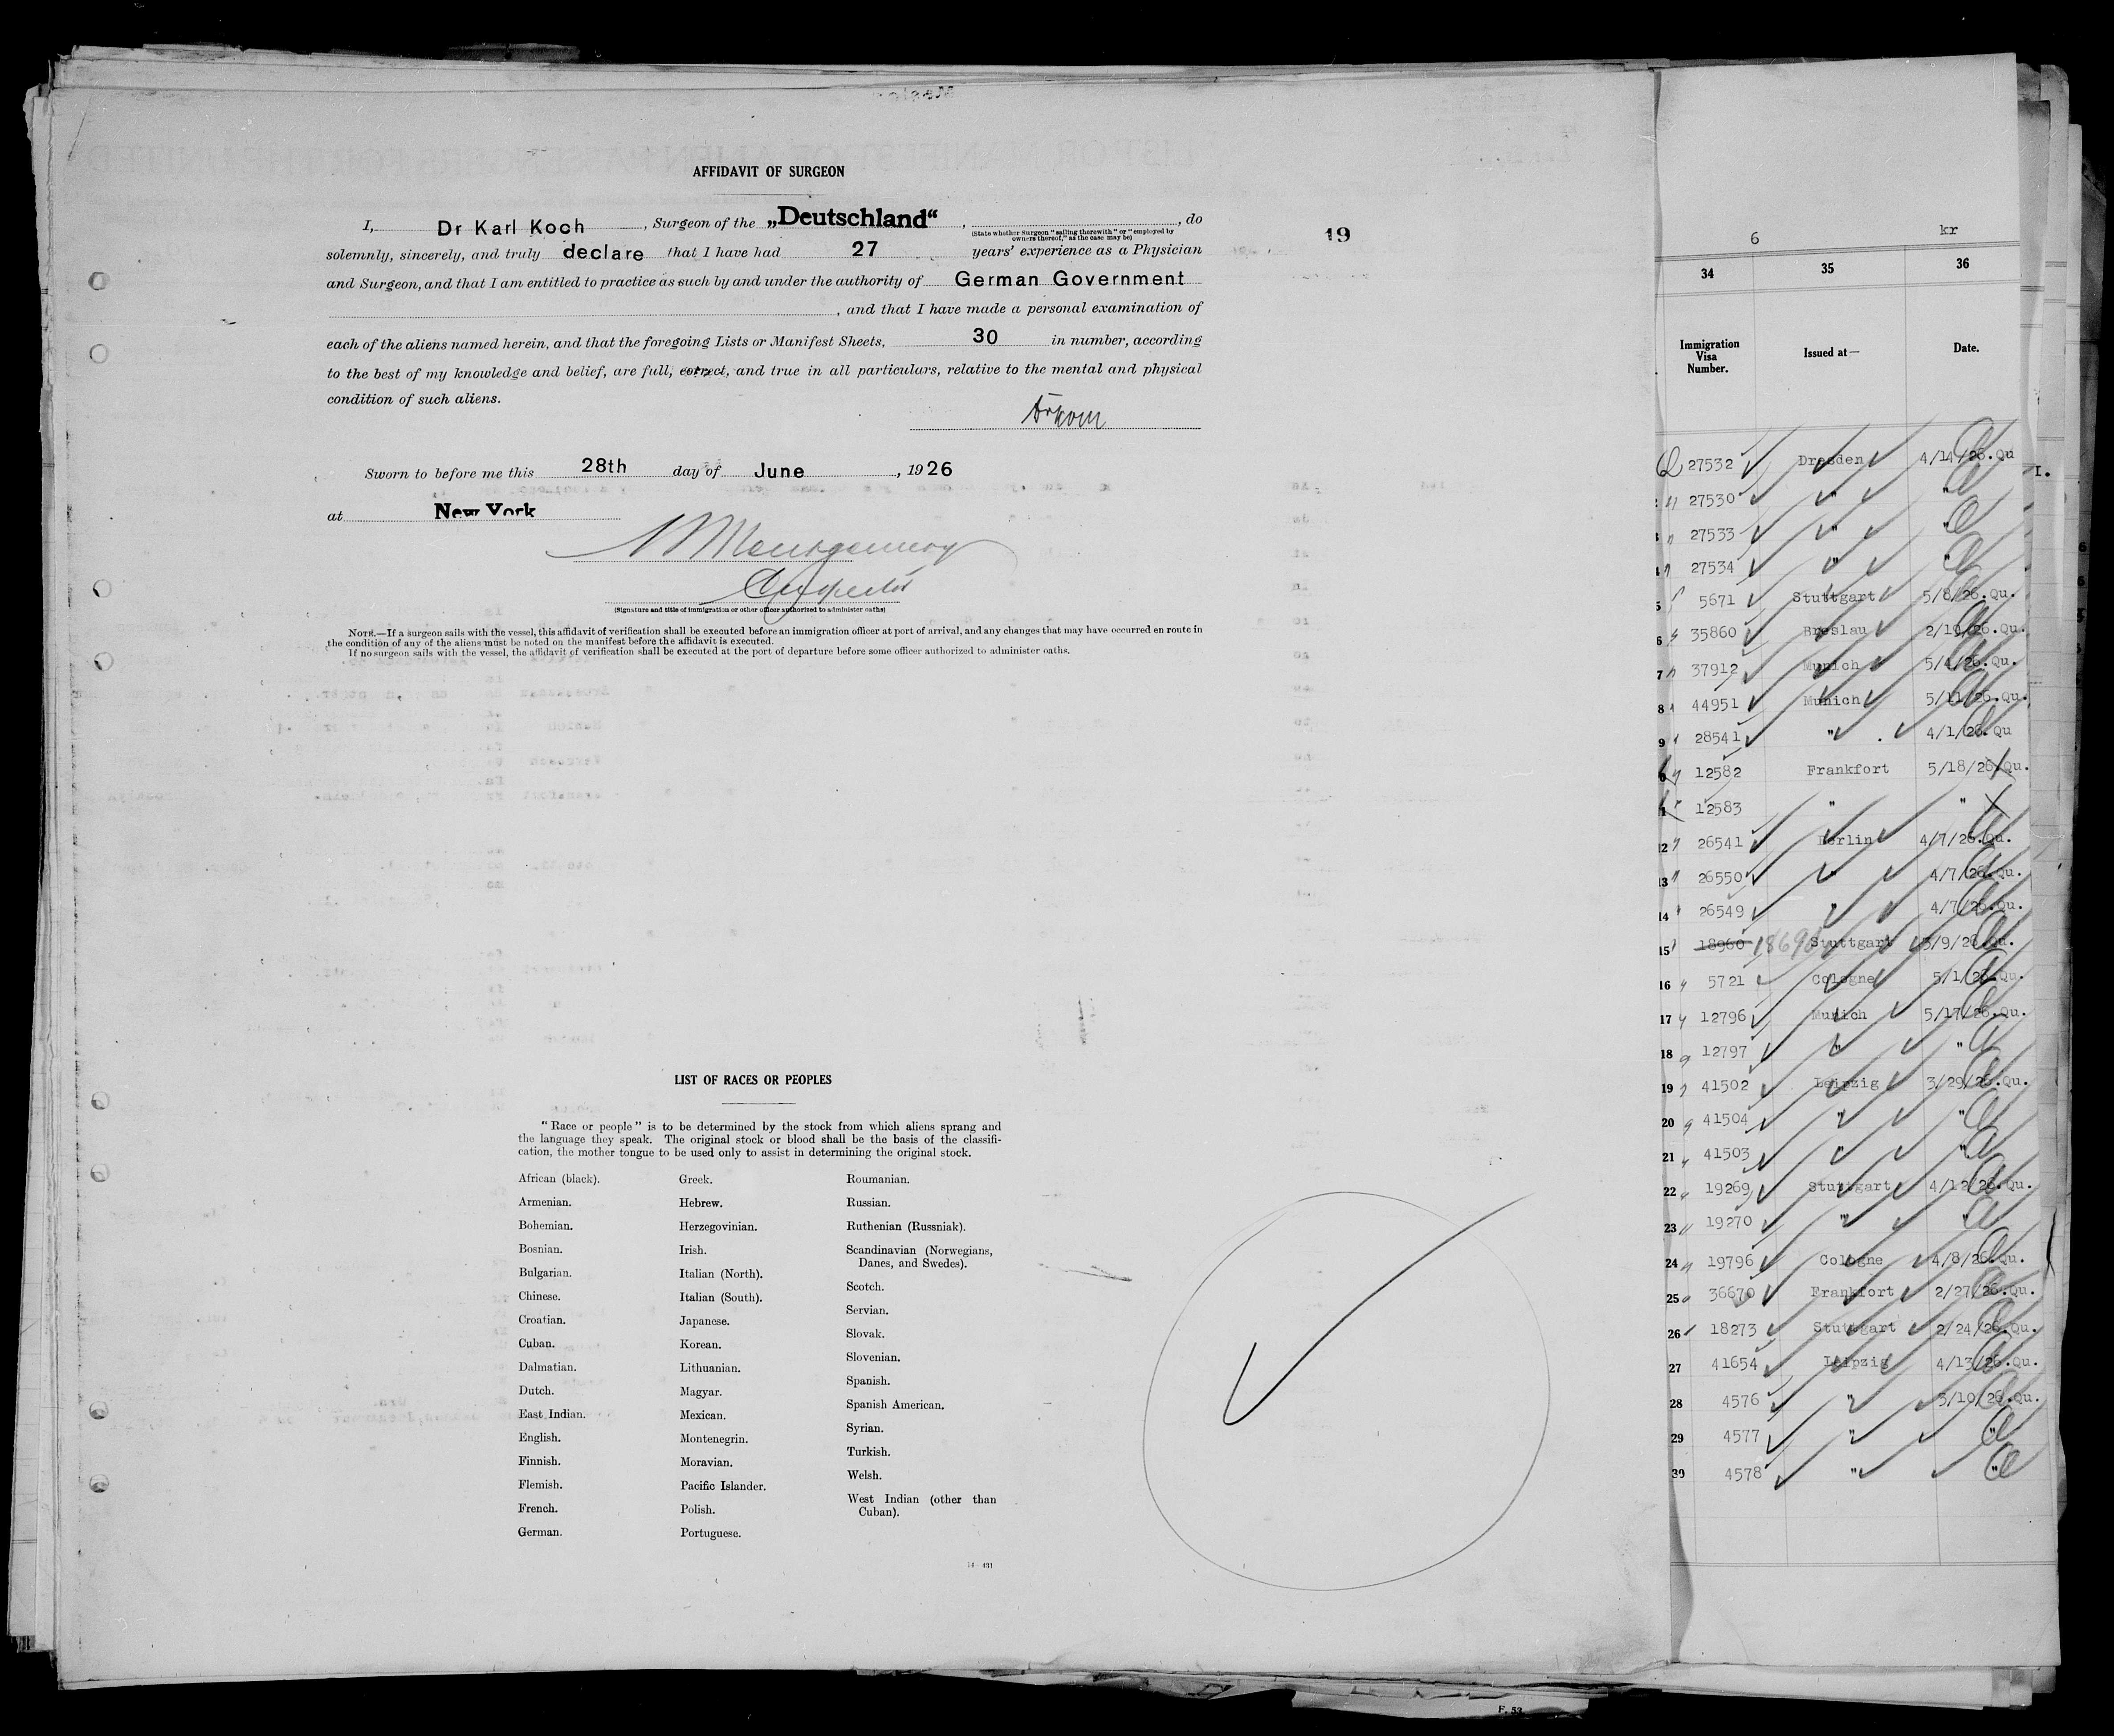 AFFIDAVIT OF SURGEON
I, Dr Karl Koch, Surgeon of the „Deutschland“, , do
(State whether Surgeon "sailing therewith" or "employed by owners thereof," as the case may be)
solemnly, sincerely, and truly declare that I have had 27 years' experience as a Physician
and Surgeon, and that I am entitled to practice as such by and under the authority of German Government
, and that I have made a personal examination of
each of the aliens named herein, and that the foregoing Lists or Manifest Sheets, 30 in number, according
to the best of my knowledge and belief, are full, correct, and true in all particulars, relative to the mental and physical
condition of such aliens.
Sworn to before me this 28th day of June, 1926
at New York
Montgomery
Inspector
(Signature and title of immigration or other officer authorized to administer oaths)
NOTE.—If a surgeon sails with the vessel, this affidavit of verification shall be executed before an immigration officer at port of arrival, and any changes that may have occurred en route in
the condition of any of the aliens must be noted on the manifest before the affidavit is executed.
If no surgeon sails with the vessel, the affidavit of verification shall be executed at the port of departure before some officer authorized to administer oaths.
19
LIST OF RACES OR PEOPLES
"Race or people" is to be determined by the stock from which aliens sprang and
the language they speak. The original stock or blood shall be the basis of the classifi-
cation, the mother tongue to be used only to assist in determining the original stock.
African (black).
Armenian.
Bohemian.
Bosnian.
Bulgarian.
Chinese.
Croatian.
Cuban.
Dalmatian.
Dutch.
East Indian.
English.
Finnish.
Flemish.
French.
German.
Greek.
Hebrew.
Herzegovinian.
Irish.
Italian (North).
Italian (South).
Japanese.
Korean.
Lithuanian.
Magyar.
Mexican.
Montenegrin.
Moravian.
Pacific Islander.
Polish.
Portuguese.
Roumanian.
Russian.
Ruthenian (Russniak).
Scandinavian (Norwegians,
Danes, and Swedes).
Scotch.
Servian.
Slovak.
Slovenian.
Spanish.
Spanish American.
Syrian.
Turkish.
Welsh.
West Indian (other than
Cuban).
14—431
6 kr
34 35 36
Immigration
Visa
Number.
Issued at—
Date.
27532 Dresden 4/14/26.Qu
27530 " "
27533 " "
27534 " "
5 5671 Stuttgart 5/8/26.Qu.
6 35860 Breslau 2/19/26.Qu.
7 37912 Munich 5/4/26.Qu.
8 44951 Munich 5/11/26.Qu.
9 28541 " 4/1/26.Qu
12582 Frankfort 5/18/26.Qu.
12583 " "
12 26541 Berlin 4/7/26.Qu.
13 26550 " 4/7/26.Qu.
14 26549 " 4/7/26.Qu.
15 18960 Stuttgart 3/9/26.Qu.
16 5721 Cologne 5/1/26.Qu.
17 12796 Munich 5/17/26.Qu.
18 12797 " "
19 41502 Leipzig 3/29/26.Qu.
20 41504 " "
21 41503 " "
22 19269 Stuttgart 4/12/26.Qu.
23 19270 " "
24 19796 Cologne 4/8/26.Qu.
25 36670 Frankfort 2/27/26.Qu.
26 18273 Stuttgart 2/24/26.Qu.
27 41654 Leipzig 4/13/26.Qu.
28 4576 " 5/10/26.Qu.
29 4577 " "
30 4578 " "
F. 53